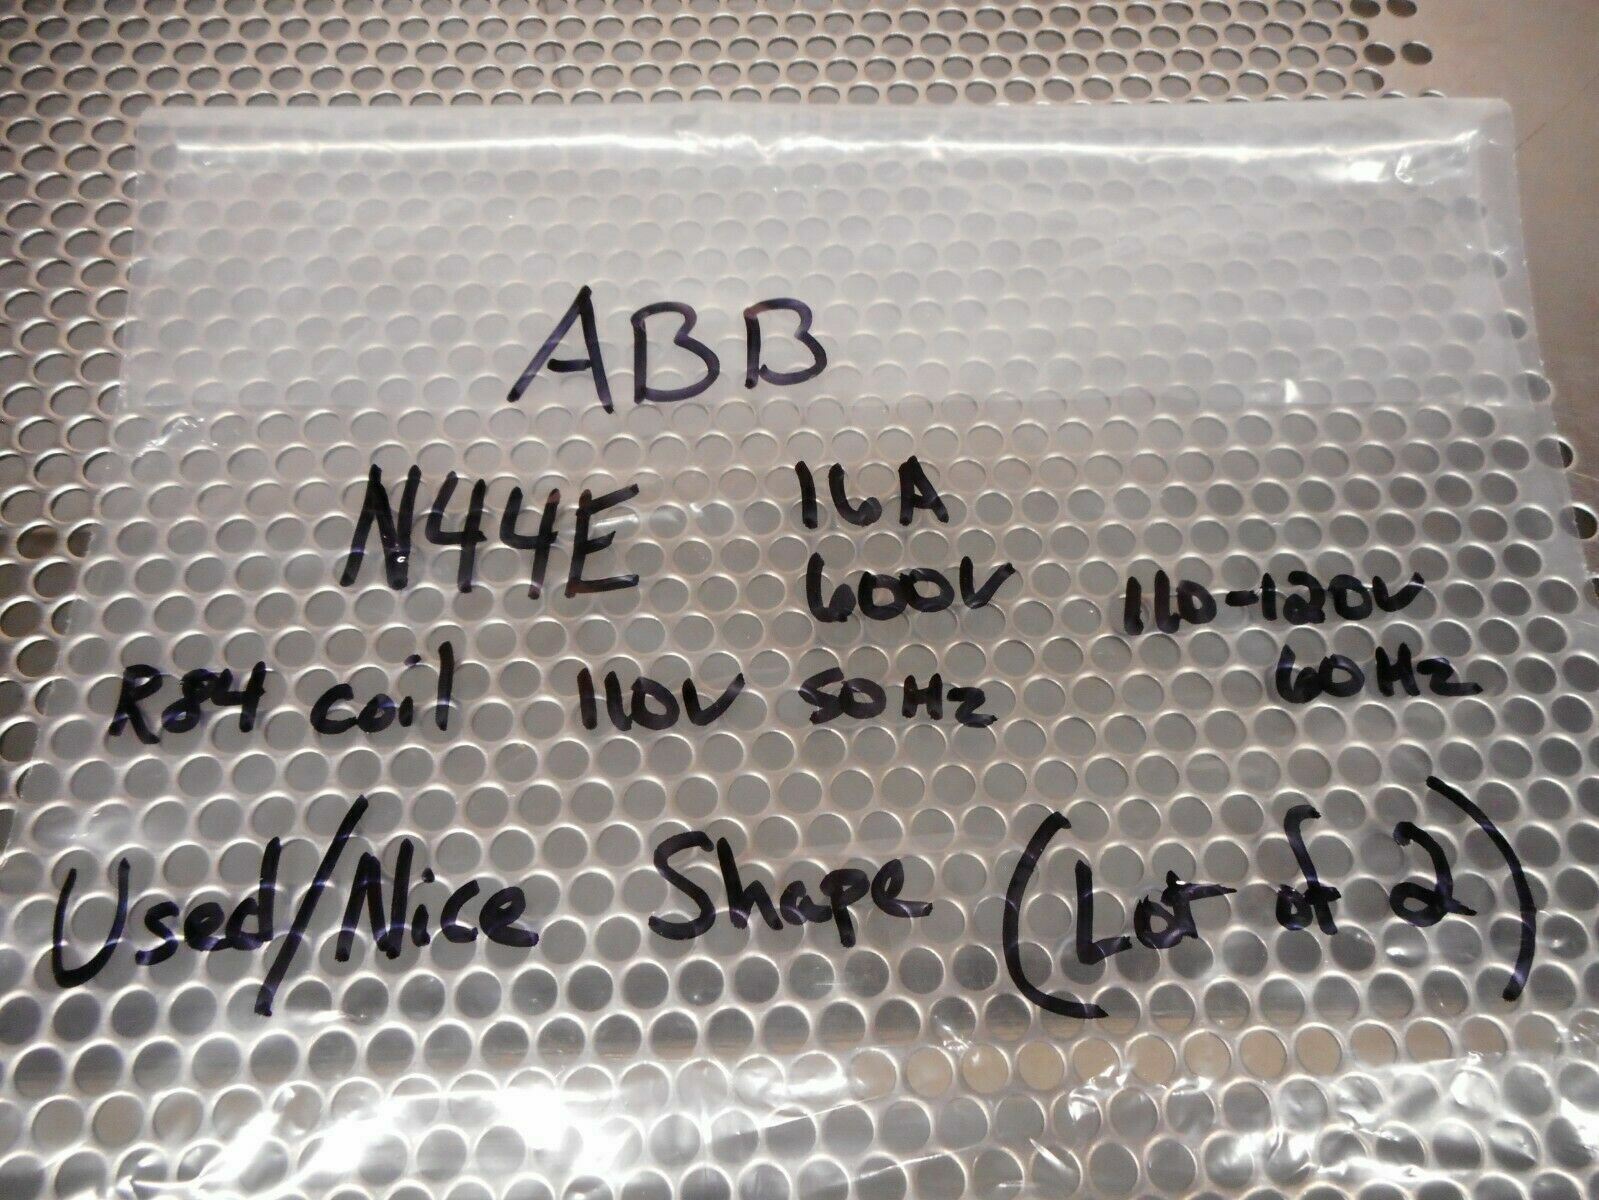 ABB
N44E 16A
600V 110-120V
R84 coil 110V 50Hz 60Hz
Used/Nice Shape (Lot of 2)